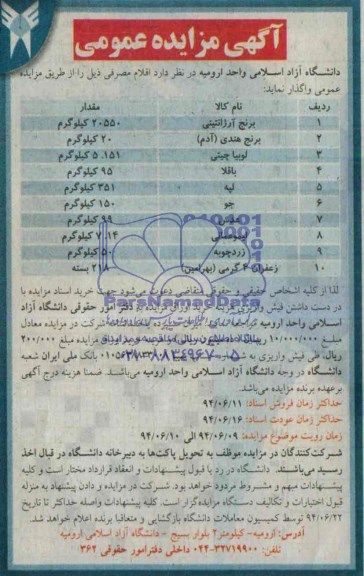 آگهی مزایده عمومی
دانشگاه آزاد اسلامی واحد ارومیه در نظر دارد اقلام مصرفی ذیل را از طریق مزایده
عمومی واگذار نماید:
ردیف نام کالا مقدار
۱ برنج آرژانتینی ۲۰۵۵۰ کیلوگرم
۲ برنج هندی (آدم) ۲۰ کیلوگرم
۳ لوبیا چیتی ۵.۱۵۱ کیلوگرم
۴ باقلا ۹۵ کیلوگرم
۵ لپه ۳۵۱ کیلوگرم
۶ جو ۱۵۰ کیلوگرم
۷ ۹۹ کیلوگرم
۸ ۷.۱۴ کیلوگرم
۹ زردچوبه ۵۰ کیلوگرم
۱۰ زعفران ۴ گرمی (بهرامین) ۲۱۸ بسته
لذا از کلیه اشخاص حقیقی و حقوقی متقاضی دعوت می‌شود جهت خرید اسناد مزایده با
در دست داشتن فیش واریزی هزینه خرید اوراق مزایده به دفتر امور حقوقی دانشگاه آزاد
اسلامی واحد ارومیه شرکت در مزایده معادل
مبلغ ۱۰/۰۰۰/۰۰۰ ریال مزایده مبلغ ۲۰۰/۰۰۰
ریال، طی فیش واریزی به بانک ملی ایران شعبه
دانشگاه در وجه دانشگاه آزاد اسلامی واحد ارومیه می‌باشد. ضمنا هزینه درج آگهی
برعهده برنده مزایده می‌باشد.
حداکثر زمان فروش اسناد: ۹۴/۰۶/۱۱
حداکثر زمان عودت اسناد: ۹۴/۰۶/۱۶
زمان رویت موضوع مزایده: ۹۴/۰۶/۰۹ الی ۹۴/۰۶/۱۰
شرکت‌کنندگان در مزایده موظف به تحویل پاکت‌ها به دبیرخانه دانشگاه در قبال اخذ
رسید می‌باشند. دانشگاه در رد یا قبول پیشنهادات و انعقاد قرارداد مختار است و کلیه
پیشنهادات مبهم و مشروط مردود خواهد بود. شرکت در مزایده و دادن پیشنهاد به منزله
قبول اختیارات و تکالیف دستگاه مزایده‌گزار است. کلیه پیشنهادات واصله حداکثر تا تاریخ
۹۴/۰۶/۲۲ توسط کمیسیون معاملات دانشگاه بازگشایی و متعاقبا برنده اعلام خواهد شد.
آدرس: ارومیه- کیلومتر ۲ بلوار بسیج - دانشگاه آزاد اسلامی ارومیه
تلفن: ۳۲۷۱۹۹۰۰-۰۴۴ داخلی دفتر امور حقوقی ۳۶۲
ParsNamadData